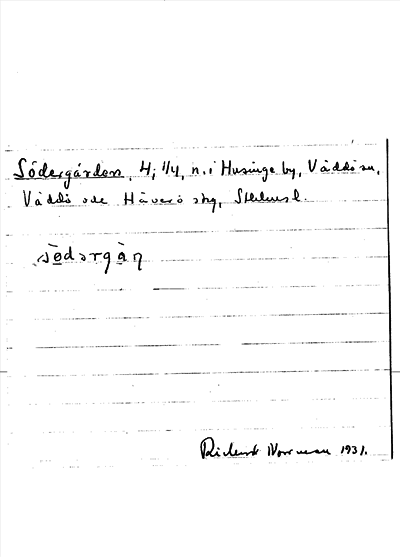 Södergården, H, 1/4, n. i Husinge by, Väddö sn,
Väddö och Häverö skg, Sthlms l.
södərgàṇ
Rickard Norrman 1931.